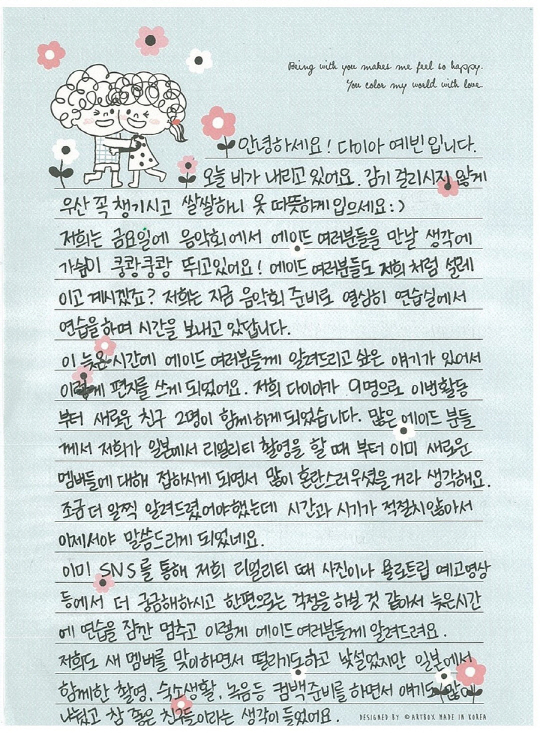 Being with you makes me feel so happy.
You color my world with love
안녕하세요! 다이아 예빈입니다.
오늘 비가 내리고 있어요. 감기 걸리시지 않게
우산 꼭 챙기시고 쌀쌀하니 옷 따뜻하게 입으세요:)
저희는 금요일에 음악회에서 에이드 여러분들을 만날 생각에
가슴이 쿵쾅쿵쾅 뛰고있어요! 에이드 여러분들도 저희처럼 설레
이고 계시겠죠? 저희는 지금 음악회 준비로 열심히 연습실에서
연습을하며 시간을 보내고 있답니다.
이 늦은 시간에 에이드 여러분들께 알려드리고 싶은 얘기가 있어서
이렇게 편지를 쓰게 되었어요. 저희 다이아가 9명으로 이번활동
부터 새로운 친구 2명이 함께하게되었습니다. 많은 에이드 분들
께서 저희가 일본에서 리얼리티 촬영을 할 때 부터 이미 새로운
멤버들에 대해 접하시게 되면서 많이 혼란스러우셨을거라 생각해요.
조금 더 일찍 알려드렸어야했는데 시간과 시기가 적절치않아서
이제서야 말씀드리게 되었네요.
이미 SNS를 통해 저희 리얼리티 때 사진이나 욜로트립 예고영상
등에서 더 궁금해하시고 한편으로는 걱정을 하실 것 같아서 늦은시간
에 연습을 잠깐 멈추고 이렇게 에이드 여러분들께 알려드려요.
저희도 새 멤버를 맞이하면서 떨리기도하고 낯설었지만 일본에서
함께한 촬영, 숙소생활, 녹음등 컴백준비를 하면서 얘기도 많이
나눴고 참 좋은 친구들이라는 생각이 들었어요.
DESIGNED BY ©ARTBOX MADE IN KOREA